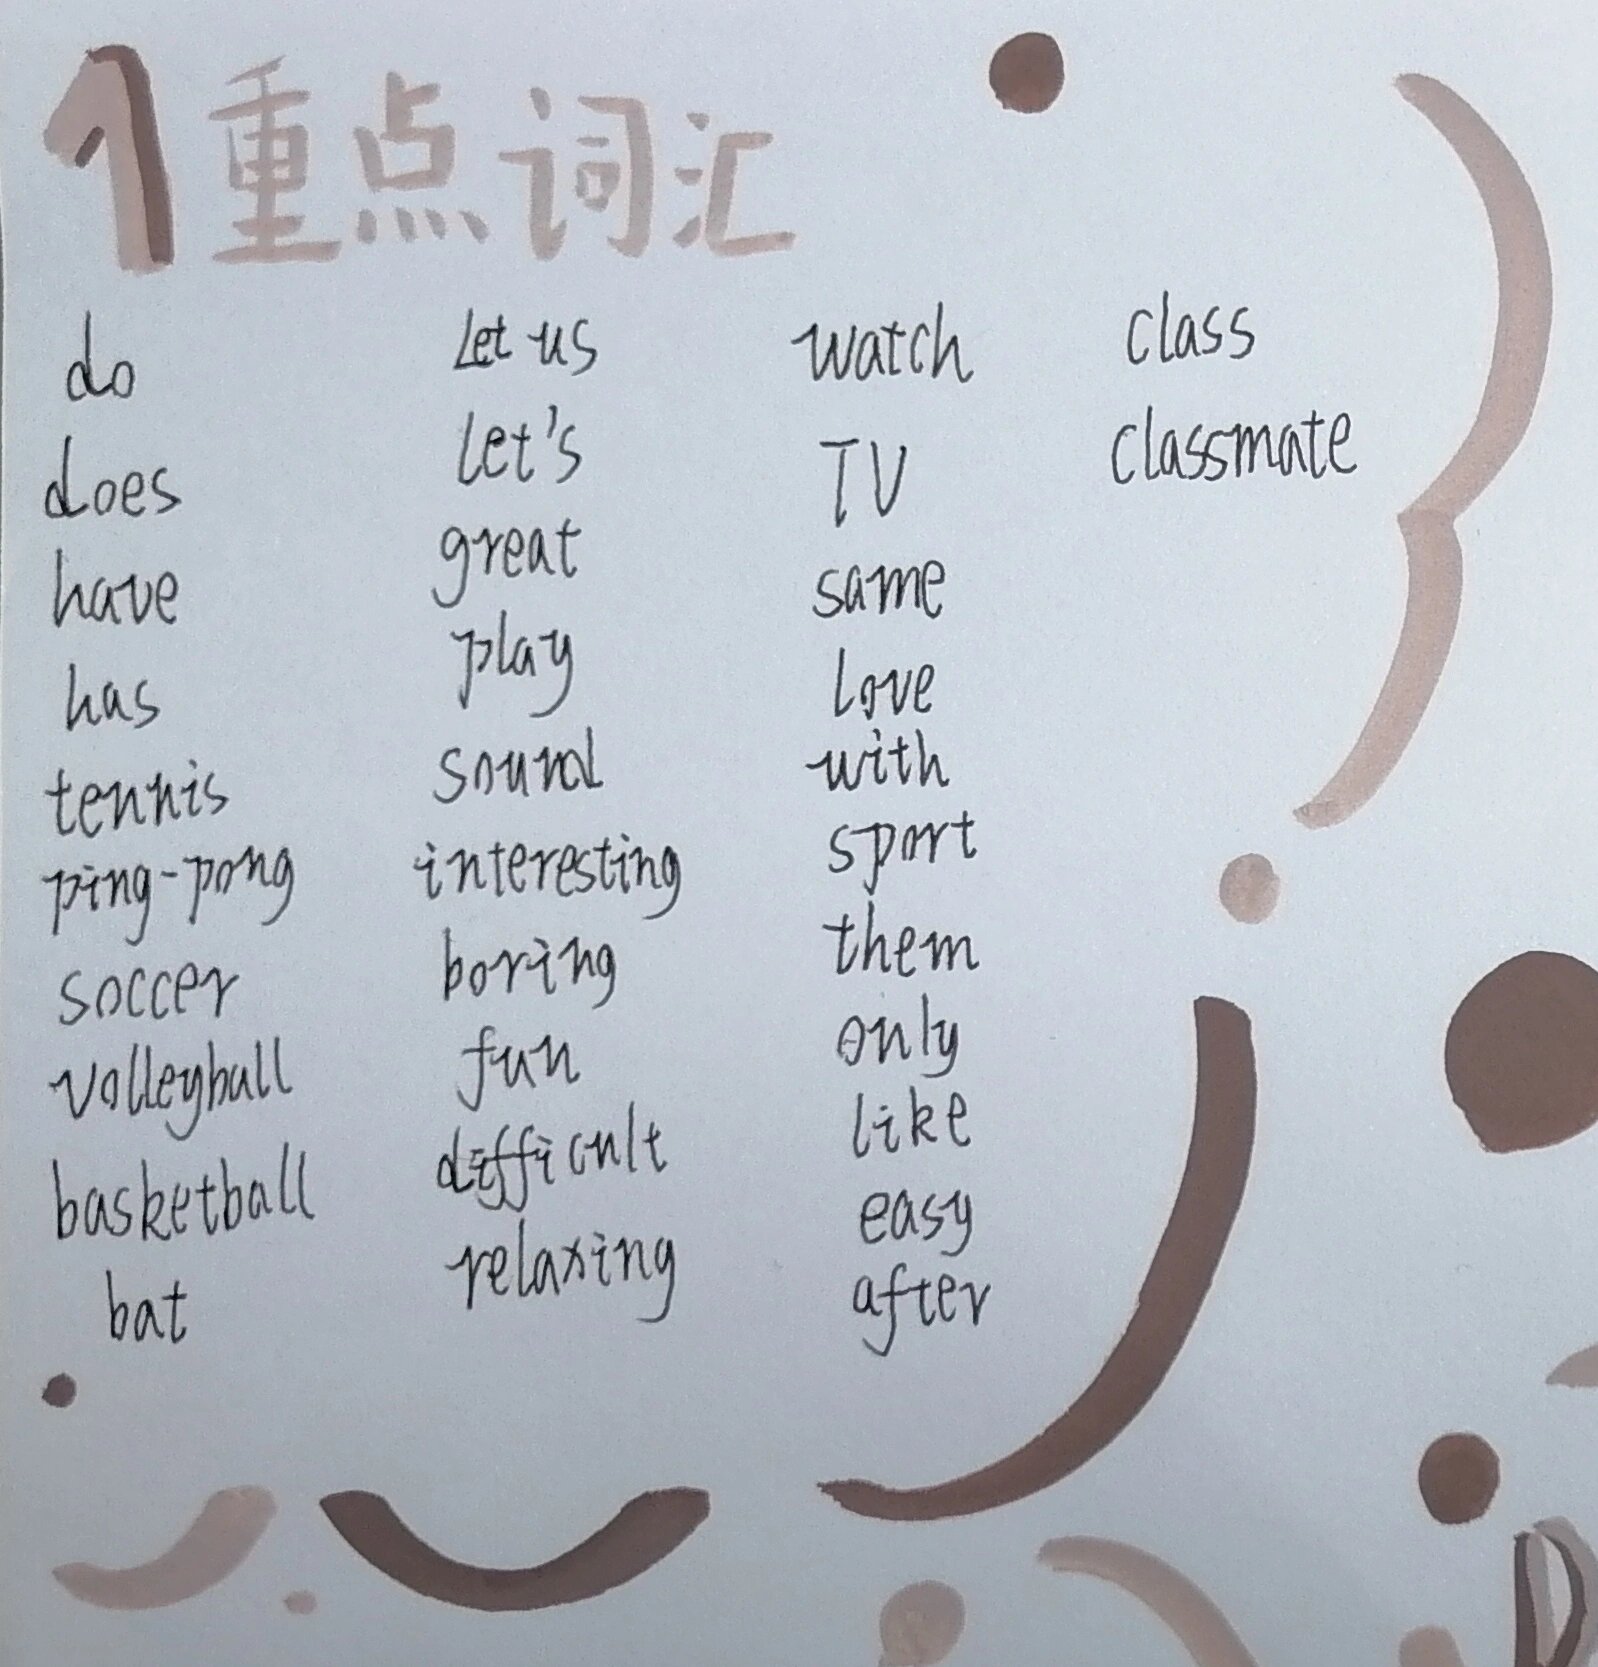 1 重点词汇
do
does
have
has
tennis
ping-pong
soccer
volleyball
basketball
bat
Let us
let's
great
play
sound
interesting
boring
fun
difficult
relaxing
watch
TV
same
love
with
sport
them
only
like
easy
after
class
classmate